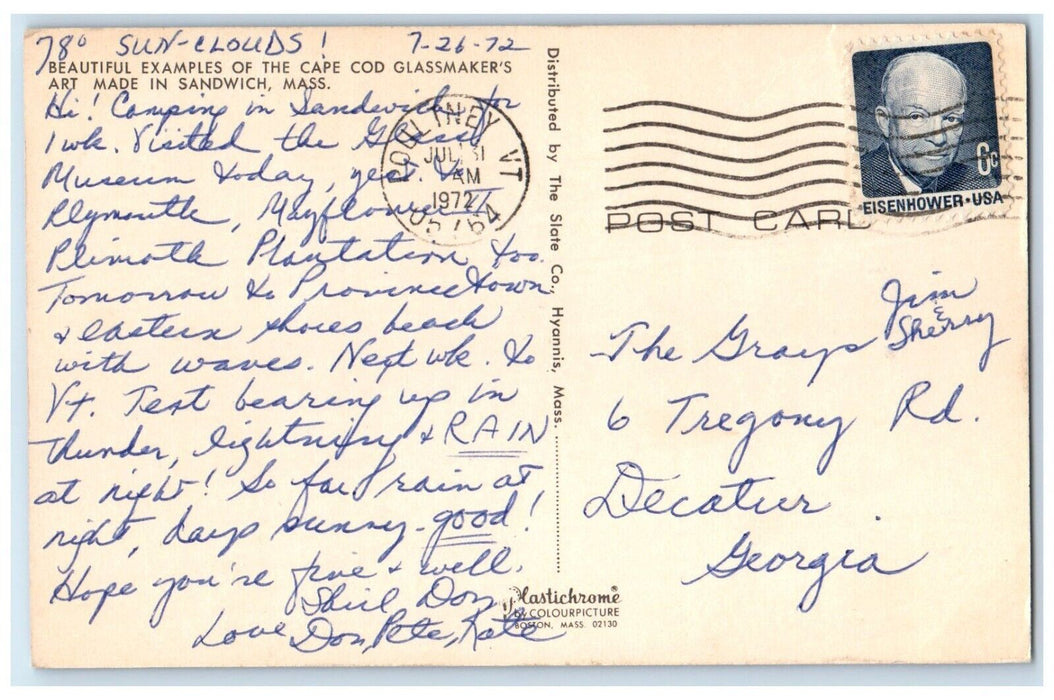 78° SUN-CLOUDS! 7-26-72
BEAUTIFUL EXAMPLES OF THE CAPE COD GLASSMAKER'S
ART MADE IN SANDWICH, MASS.
Hi! Camping in Sandwich for
1 wk. Visited the Glass
Museum today, yest. to
Plymouth, Mayflower II
Plimoth Plantation too.
Tomorrow to Provincetown
& eastern shores beach
with waves. Next wk. to
Vt. Tent bearing up in
thunder, lightning & RAIN
at night! So far rain at
night, days sunny-good!
Hope you're fine & well.
Love Don, Pete, Kate
Distributed by The Slate Co., Hyannis, Mass.
Plastichrome®
by COLOURPICTURE
BOSTON, MASS. 02130
POULTNEY VT
JUL 31
AM
1972
05764
6c
EISENHOWER·USA
POST CARD
The Grays Jim
& Sherry
6 Tregony Rd.
Decatur
Georgia